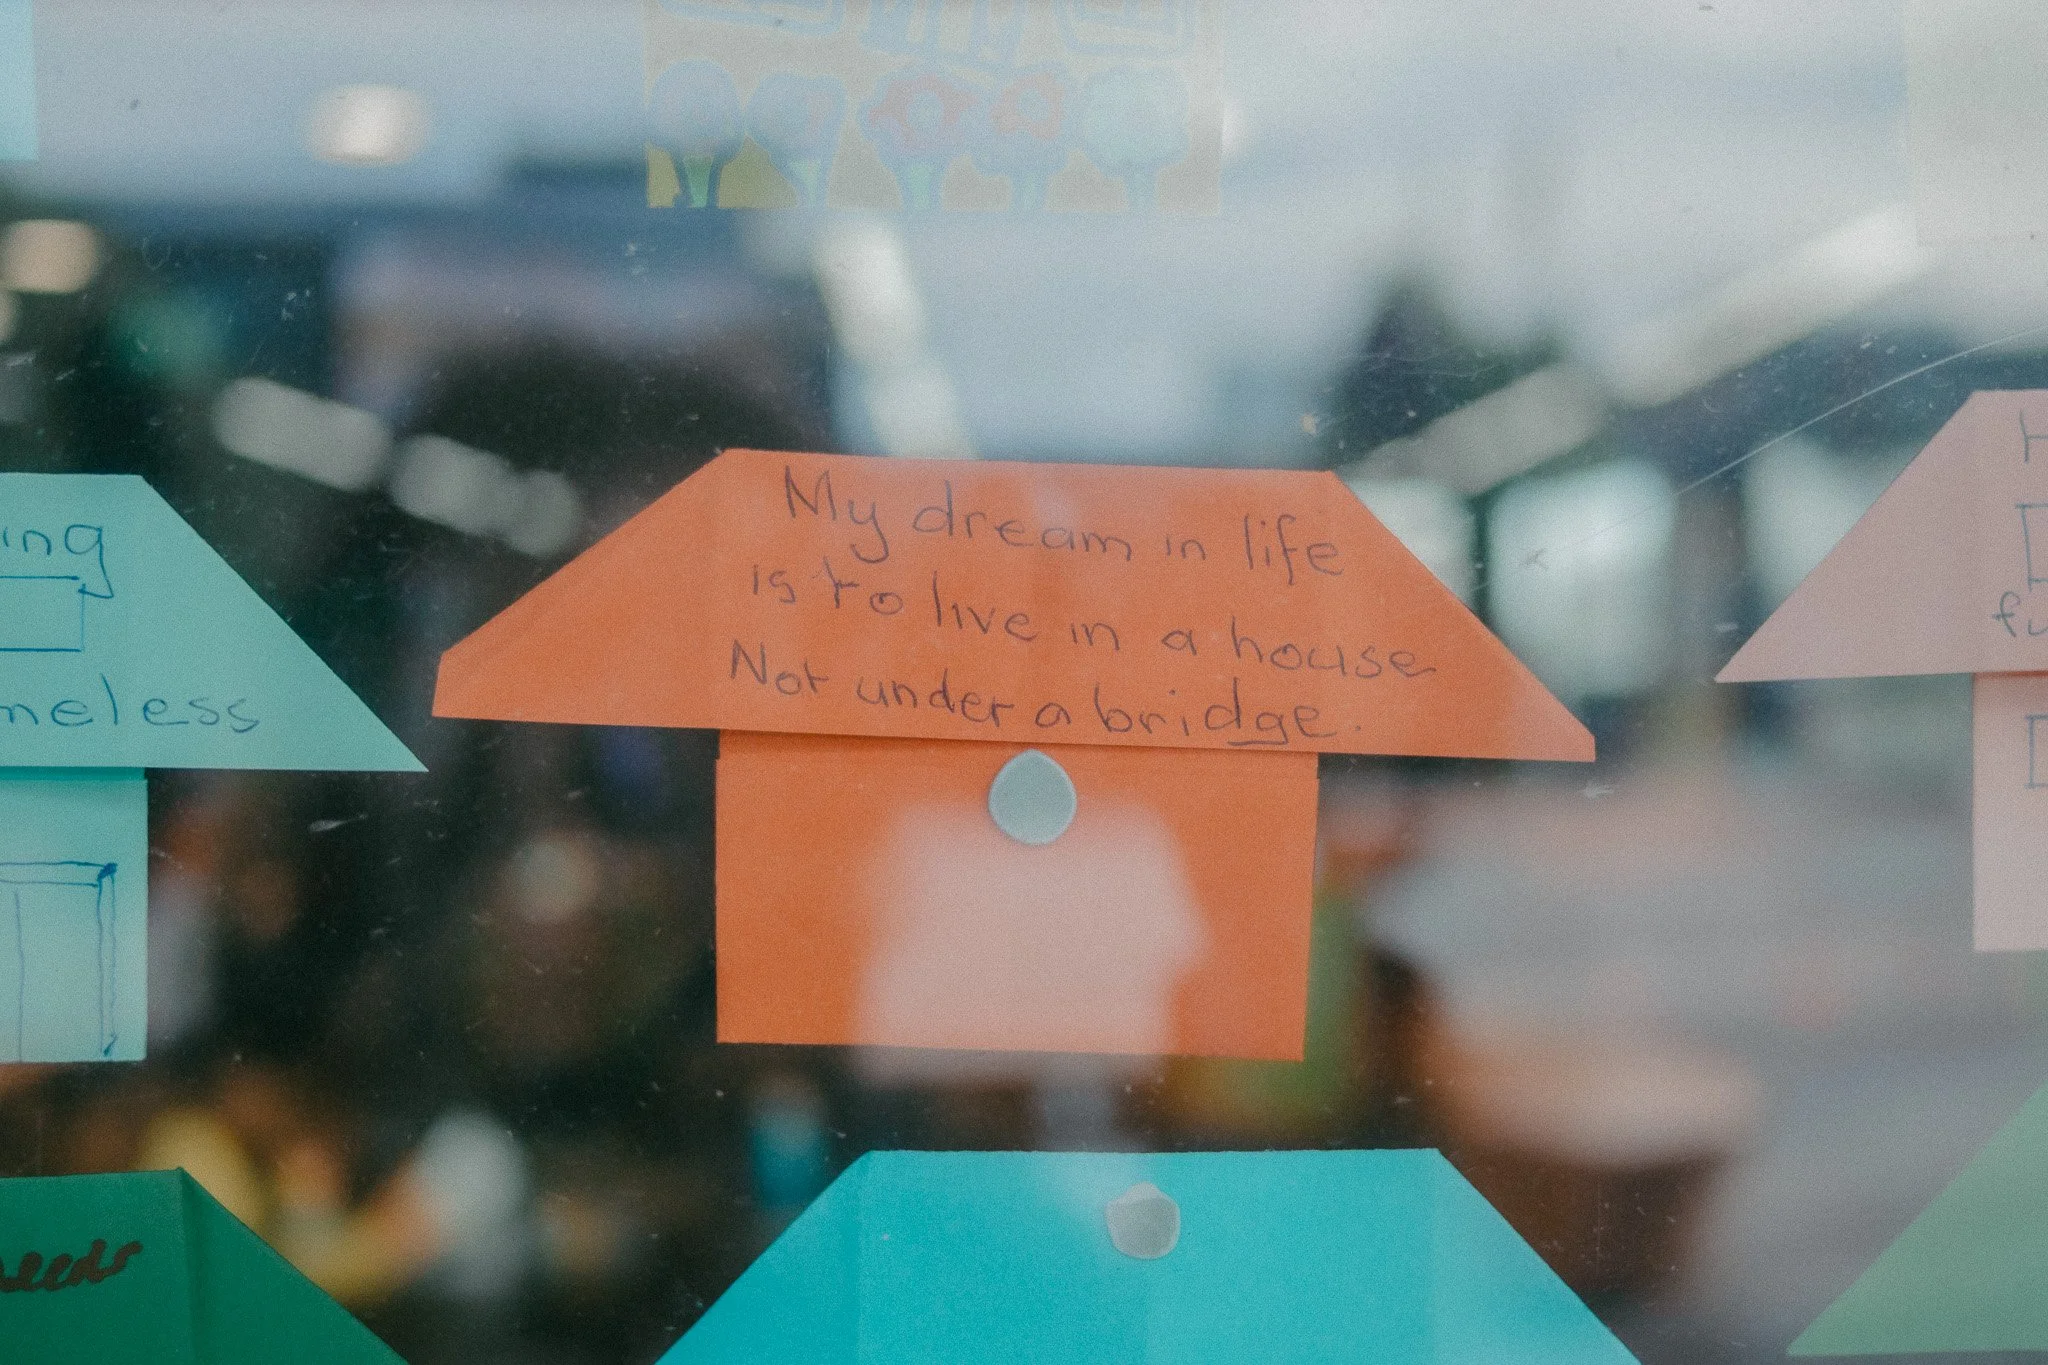 My dream in life
is to live in a house
Not under a bridge.
ing
meless
needs
H
fu